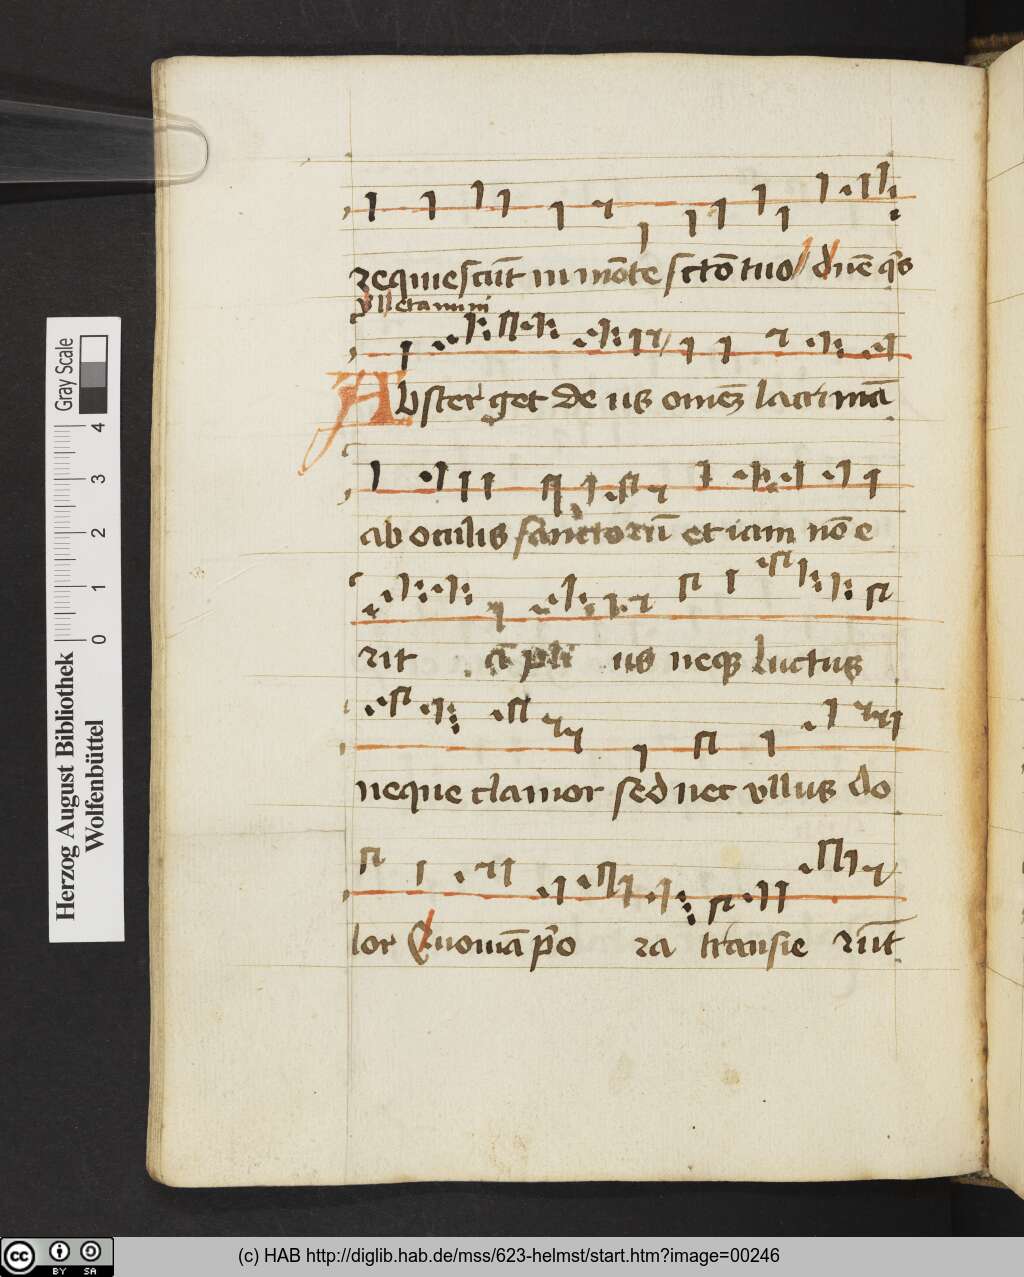 requiescūt in mōte sctō tuo dn̄e qs
vll etamini
Abster get de us om̄eʒ lacrimā
ab oculis sanctorū et iam nō e
rit a pli us neqʒ luctus
neque clamor sed nec vllus do
lor Quoniā po ra transie rūt
Herzog August Bibliothek
Wolfenbüttel
Gray Scale
0 1 2 3 4
cc BY SA
(c) HAB http://diglib.hab.de/mss/623-helmst/start.htm?image=00246